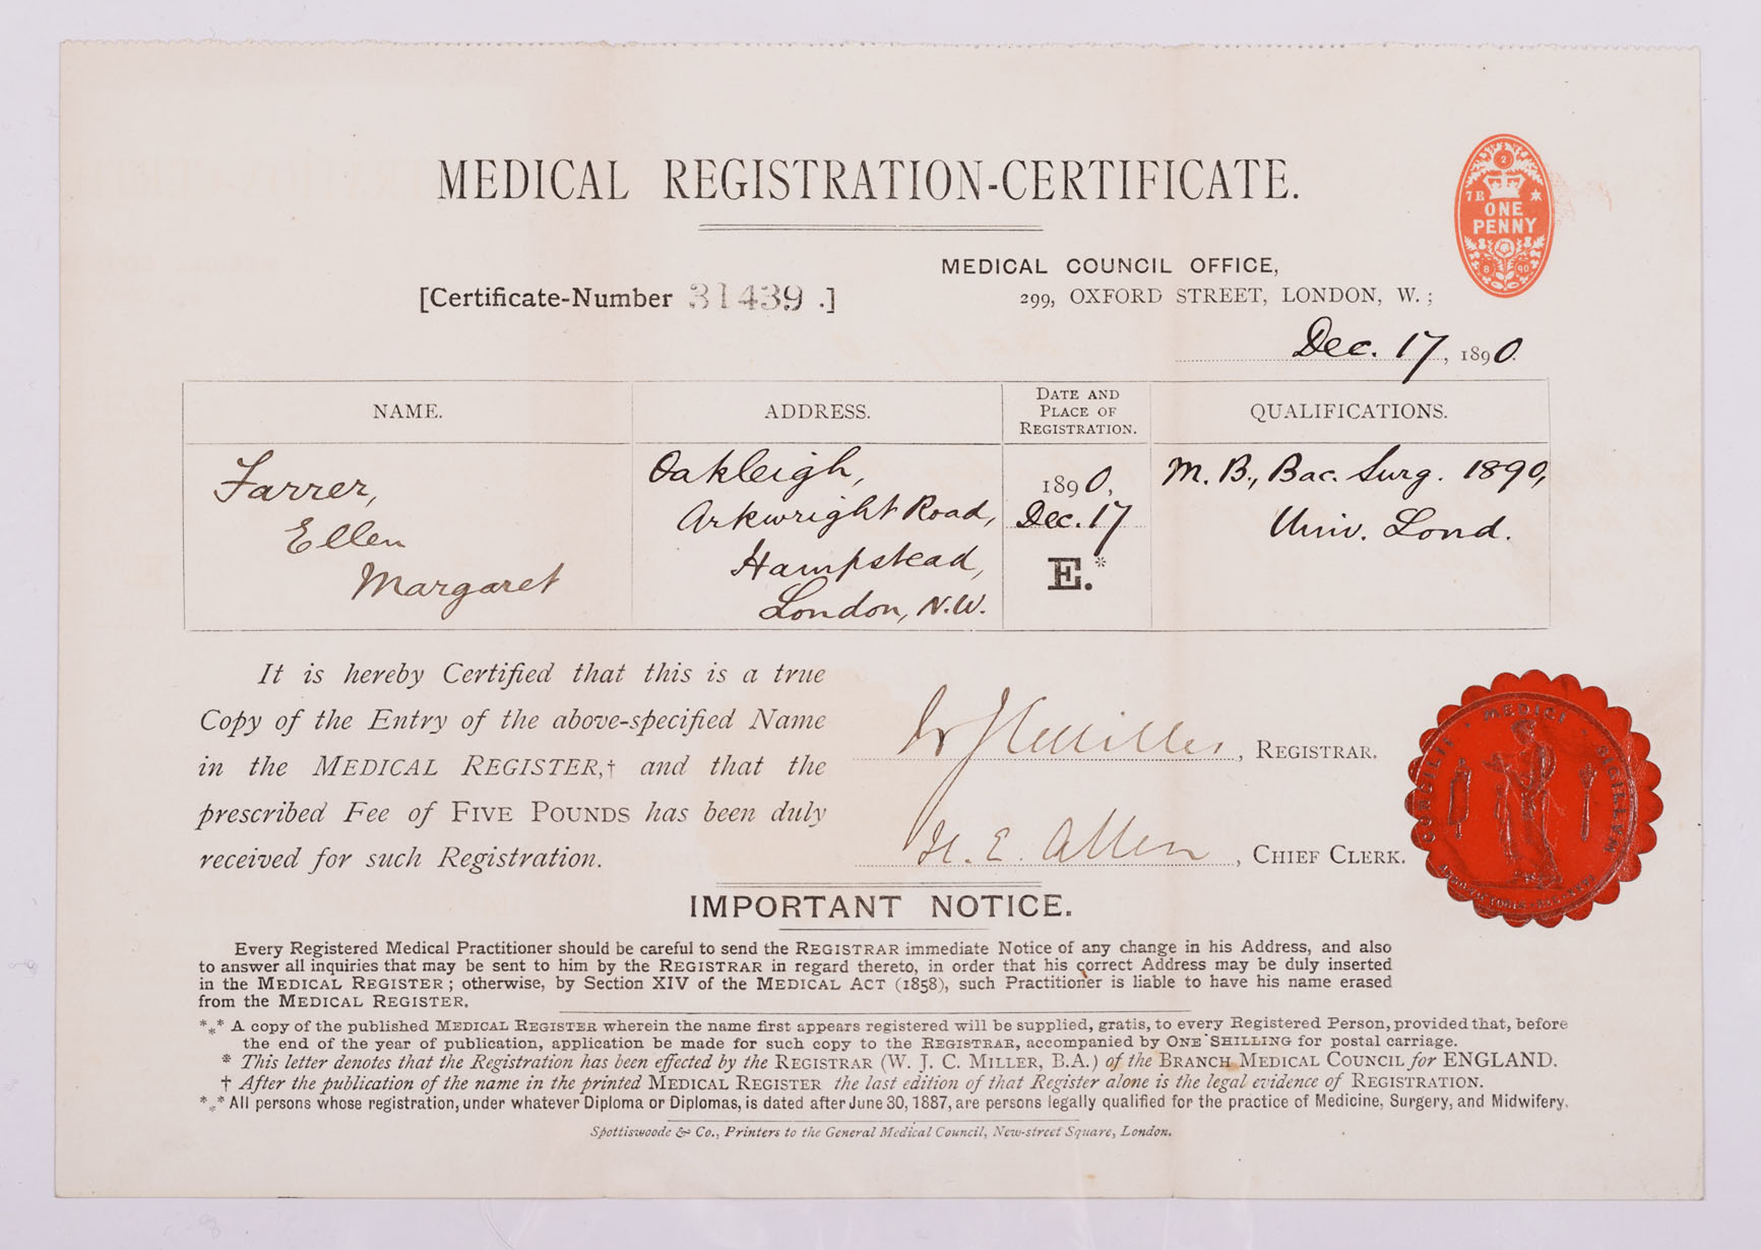 MEDICAL REGISTRATION-CERTIFICATE.
2
7 R
ONE
PENNY
8 90
MEDICAL COUNCIL OFFICE,
[Certificate-Number 31439 .]
299, OXFORD STREET, LONDON, W. ;
Dec. 17, 1890.
NAME.
ADDRESS.
DATE AND
PLACE OF
REGISTRATION.
QUALIFICATIONS.
Farrer,
Ellen
Margaret
Oakleigh,
Arkwright Road,
Hampstead,
London, N.W.
1890,
Dec. 17
E.*
M. B., Bac. Surg. 1890,
Univ. Lond.
It is hereby Certified that this is a true
Copy of the Entry of the above-specified Name
in the MEDICAL REGISTER,† and that the
prescribed Fee of FIVE POUNDS has been duly
received for such Registration.
W J C Miller, REGISTRAR.
H. E. Allen, CHIEF CLERK.
MEDICI
IMPORTANT NOTICE.
Every Registered Medical Practitioner should be careful to send the REGISTRAR immediate Notice of any change in his Address, and also
to answer all inquiries that may be sent to him by the REGISTRAR in regard thereto, in order that his correct Address may be duly inserted
in the MEDICAL REGISTER ; otherwise, by Section XIV of the MEDICAL ACT (1858), such Practitioner is liable to have his name erased
from the MEDICAL REGISTER.
*** A copy of the published MEDICAL REGISTER wherein the name first appears registered will be supplied, gratis, to every Registered Person, provided that, before
the end of the year of publication, application be made for such copy to the REGISTRAR, accompanied by ONE SHILLING for postal carriage.
* This letter denotes that the Registration has been effected by the REGISTRAR (W. J. C. MILLER, B.A.) of the BRANCH MEDICAL COUNCIL for ENGLAND.
† After the publication of the name in the printed MEDICAL REGISTER the last edition of that Register alone is the legal evidence of REGISTRATION.
*** All persons whose registration, under whatever Diploma or Diplomas, is dated after June 30, 1887, are persons legally qualified for the practice of Medicine, Surgery, and Midwifery.
Spottiswoode & Co., Printers to the General Medical Council, New-street Square, London.